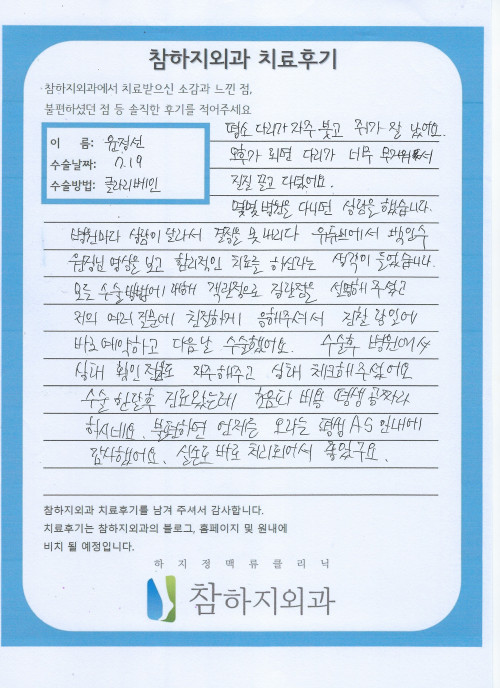 참하지외과 치료후기
참하지외과에서 치료받으신 소감과 느낀 점,
불편하셨던 점 등 솔직한 후기를 적어주세요
이 름: 윤정선
수술날짜: 7.19
수술방법: 클라리베인
평소 다리가 자주 붓고 쥐가 잘 났어요.
오후가 되면 다리가 너무 무거워서
질질 끌고 다녔어요.
몇몇 병원을 다니면 상담을 했습니다.
병원마다 상담이 달라서 결정을 못내리다 유튜브에서
원장님 영상을 보고 합리적인 치료를 하신다는 생각이 들었습니다.
모든 수술방법에 대해 객관적으로 장단점을 설명해 주셨고
저의 여러 질문에 친절하게 응해주셔서 검찰 당일에
바로 예약하고 다음날 수술했어요. 수술후 병원에서
상태 확인 전화도 자주해주고 상태 체크해주셨어요
수술 한달후 진료왔는데 초음파 비용 평생 공짜라
하시네요. 불편하면 언제든 오라는 평생 AS 안내에
감사했어요. 실손도 바로 처리되어서 좋았구요.
참하지외과 치료후기를 남겨 주셔서 감사합니다.
치료후기는 참하지외과의 블로그, 홈페이지 및 원내에
비치 될 예정입니다.
하지정맥류클리닉
참하지외과